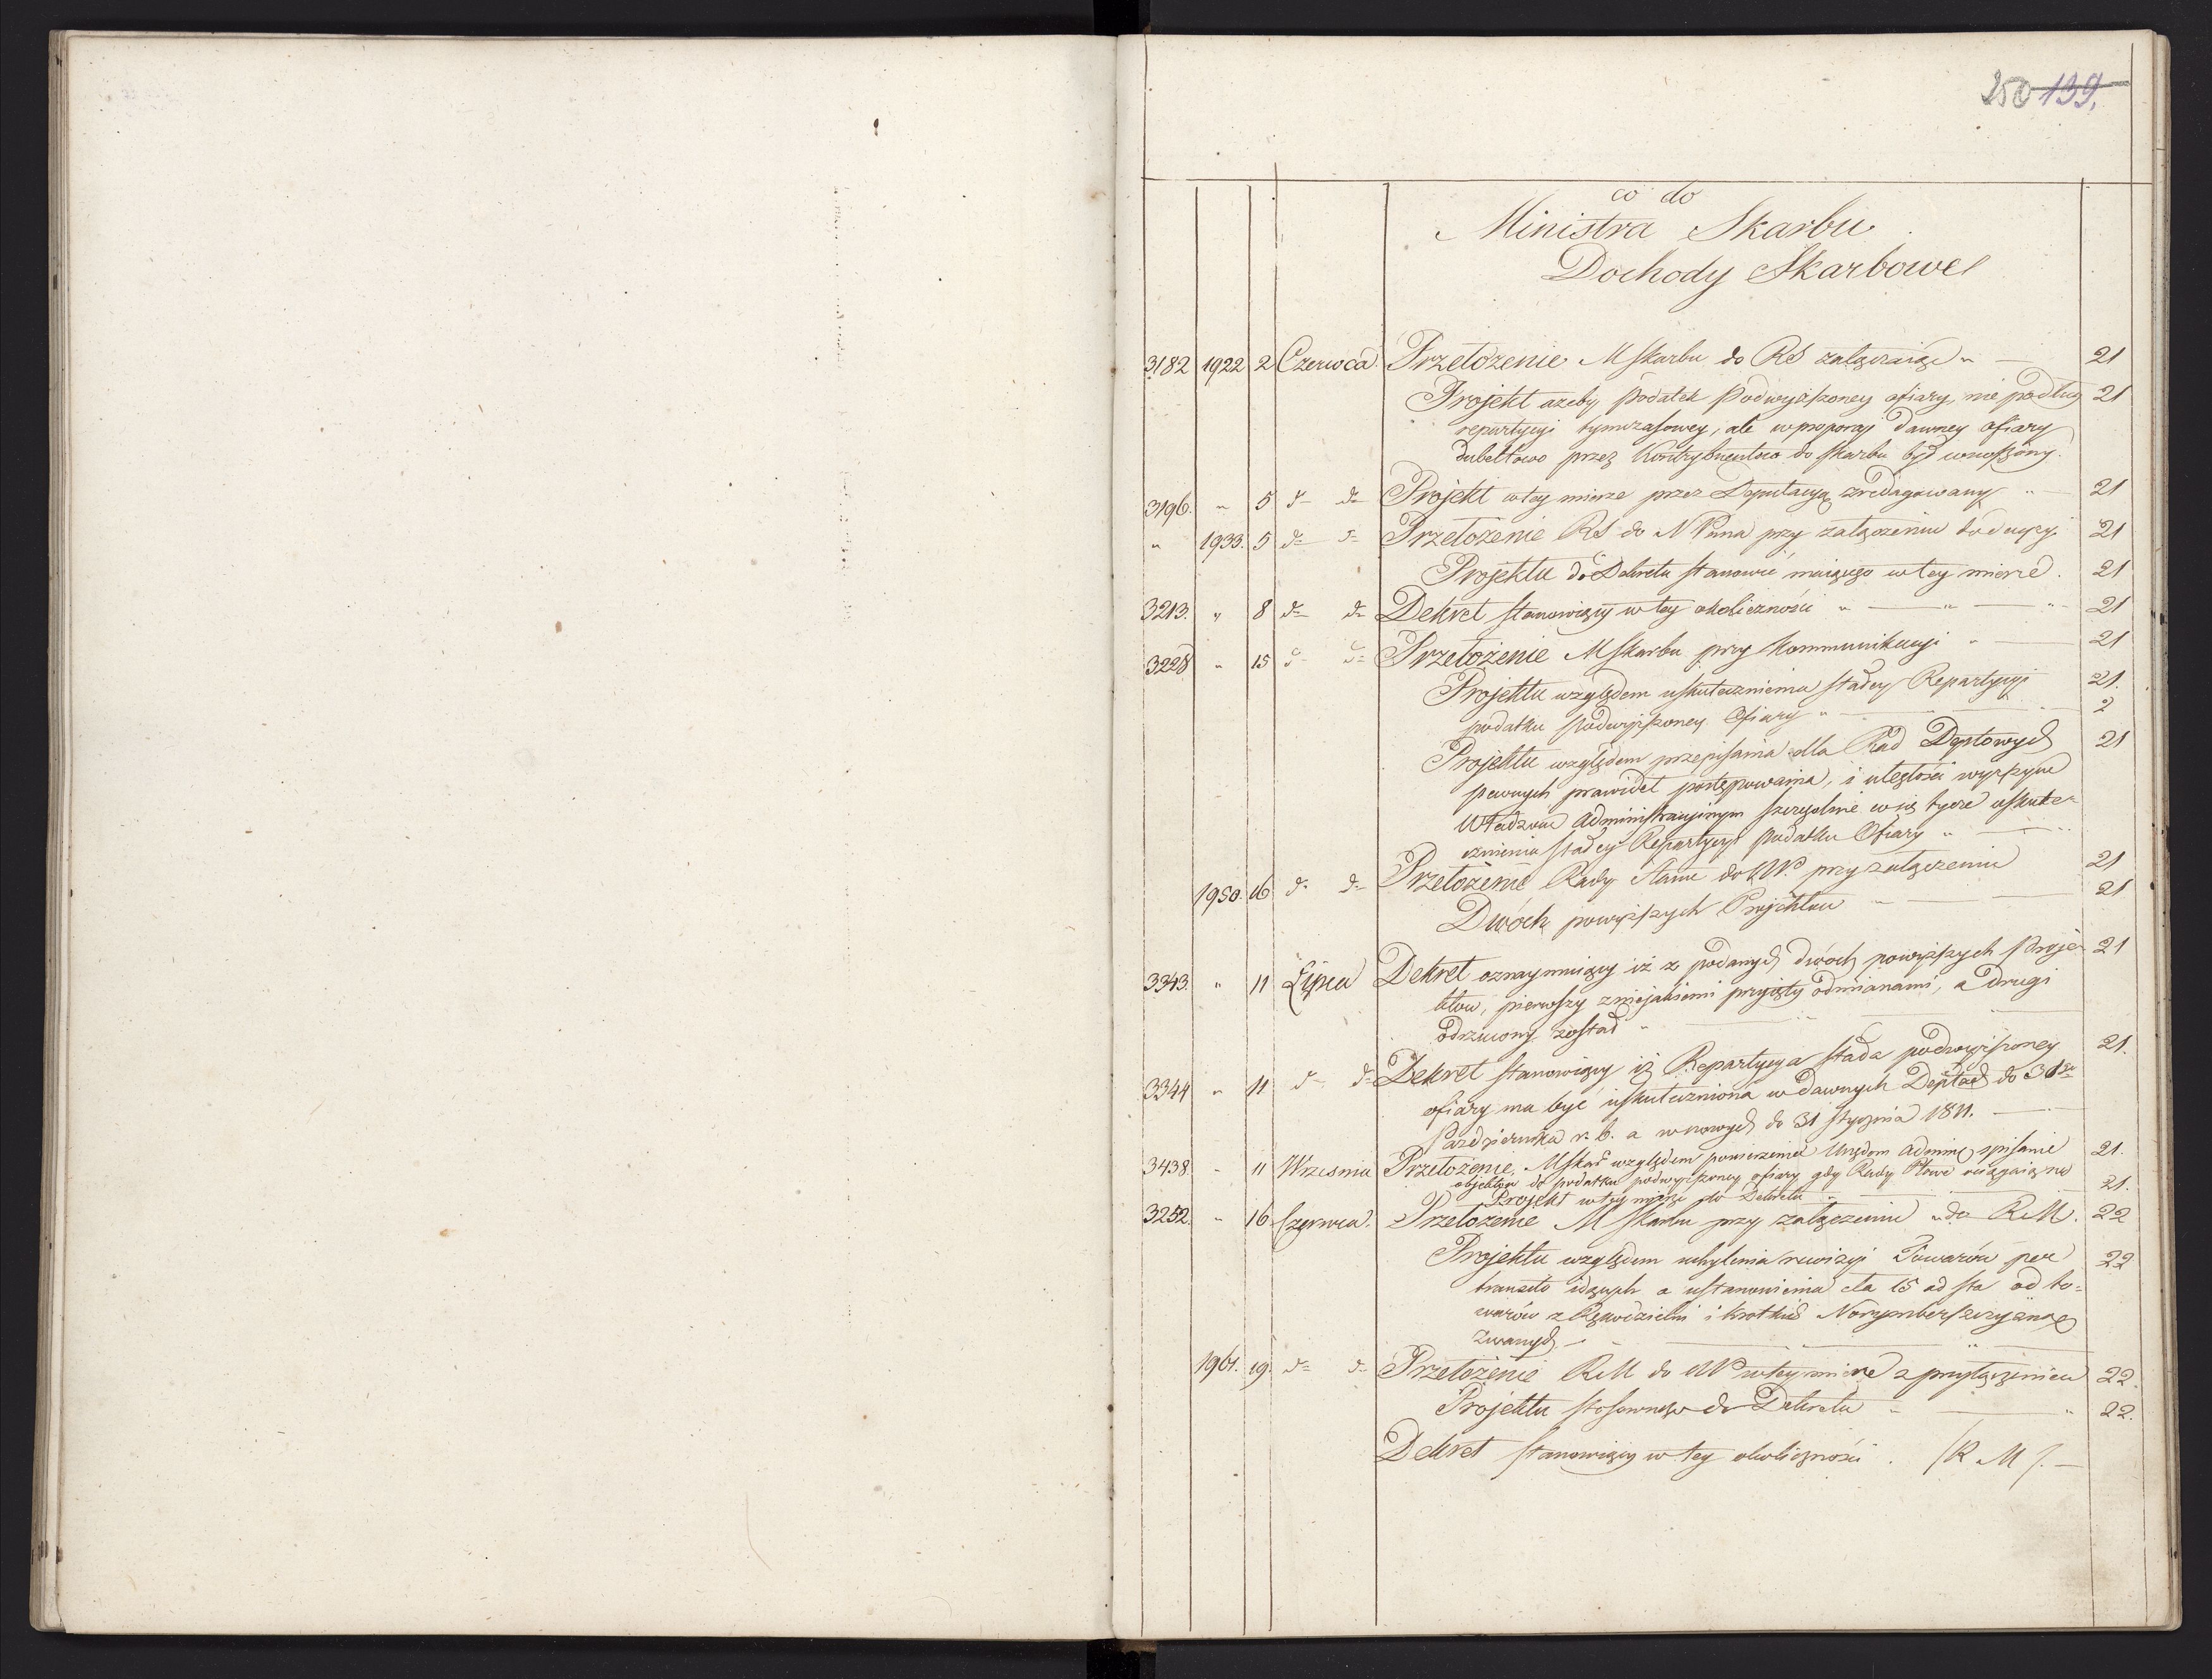 250 139.
co do
Ministra Skarbu
Dochody Skarbowe
3182 1922 2 Czerwca Przełożenie M Skarbu do RS załączaiąc " 21
Projekt ażeby podatek podwyższoney ofiary, nie podług 21
repartycyi tymczasowey, ale w proporcyi dawney ofiary
dubeltowo przez Kontrybuentow do skarbu był wnoszony.
3196. " 5 d- do Projekt w tey mierze przez Deputacyą zredagowany " 21
" 1933. 5 do d- Przełożenie RS do N Pana przy załączeniu 21
Projektu do Dekretu stanowić maiącego w tey mierze. 21
3213. " 8 do do Dekret stanowiący w tey okoliczności " — " — " 21
3228 " 15 d- do Przełożenie M Skarbu przy kommunikacyi " — 21
Projektu względem uskutecznienia stałey Repartycyi 21.
podatku podwyższoney Ofiary " — " 2
Projektu względem przepisania dla Rad Deptowych 21
pewnych prawideł postępowania, i uległości wyższym
Władzom Administracyinym szczegolnie co się tycze uskute-
cznienia stałey Repartycyi podatku Ofiary " —
1950. 16 d- do Przełożenie Rady Stanu do NP. przy załączeniu 21
Dwóch powyższych Projektow " — 21
3343. " 11 Lipca Dekret oznaymuiący iż z podanych dwóch powyższych Proje- 21
któw, pierwszy z niejakiemi przyięty odmianami, a drugi
odrzucony został " —
3344 " 11 d- do Dekret stanowiący iż Repartycya stała podwyższoney 21.
ofiary ma być uskuteczniona w dawnych Deptach do 31go
Października r. b. a w nowych do 31 stycznia 1811. —
3438. " 11 Wrzesnia Przełożenie, MSkar względem powierzenia Urzędom Admin. spisanie 21.
objektow do podatku podwyższoney ofiary gdy Rady Ptowe ociągaią się
Projekt w tey mierze do Dekretu — 21.
3252. " 16 Czerwca. Przełożenie M Skarbu przy załączeniu " do RM. 22
Projektu względem uchylenia rewizyi Towarów per 22
transito idących a ustanowienia cła 15 ad sta od to-
warów z Rękodzielni i krotkich Norymberszczyzną
zwanych —
1961. 19. do do Przełożenie RM do NP w tey mierze z przyłączeniem 22.
Projektu stosownego do Dekretu " — " 22.
Dekret stanowiący w tey okoliczności. /R M/. —